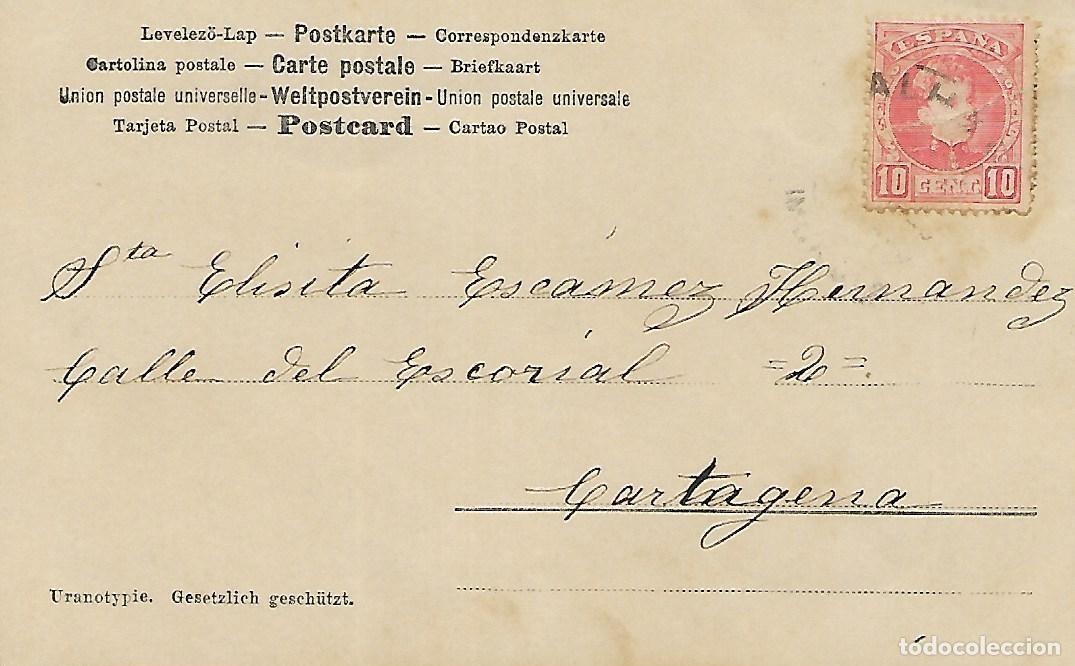 Levelező-Lap — Postkarte — Correspondenzkarte
Cartolina postale — Carte postale — Briefkaart
Union postale universelle - Weltpostverein - Union postale universale
Tarjeta Postal — Postcard — Cartao Postal
ESPAÑA
10 CENT. 10
Sta Elisita Escámez Hernandez
Calle del Escorial =2=.
Cartagena
Uranotypie. Gesetzlich geschützt.
todocoleccion